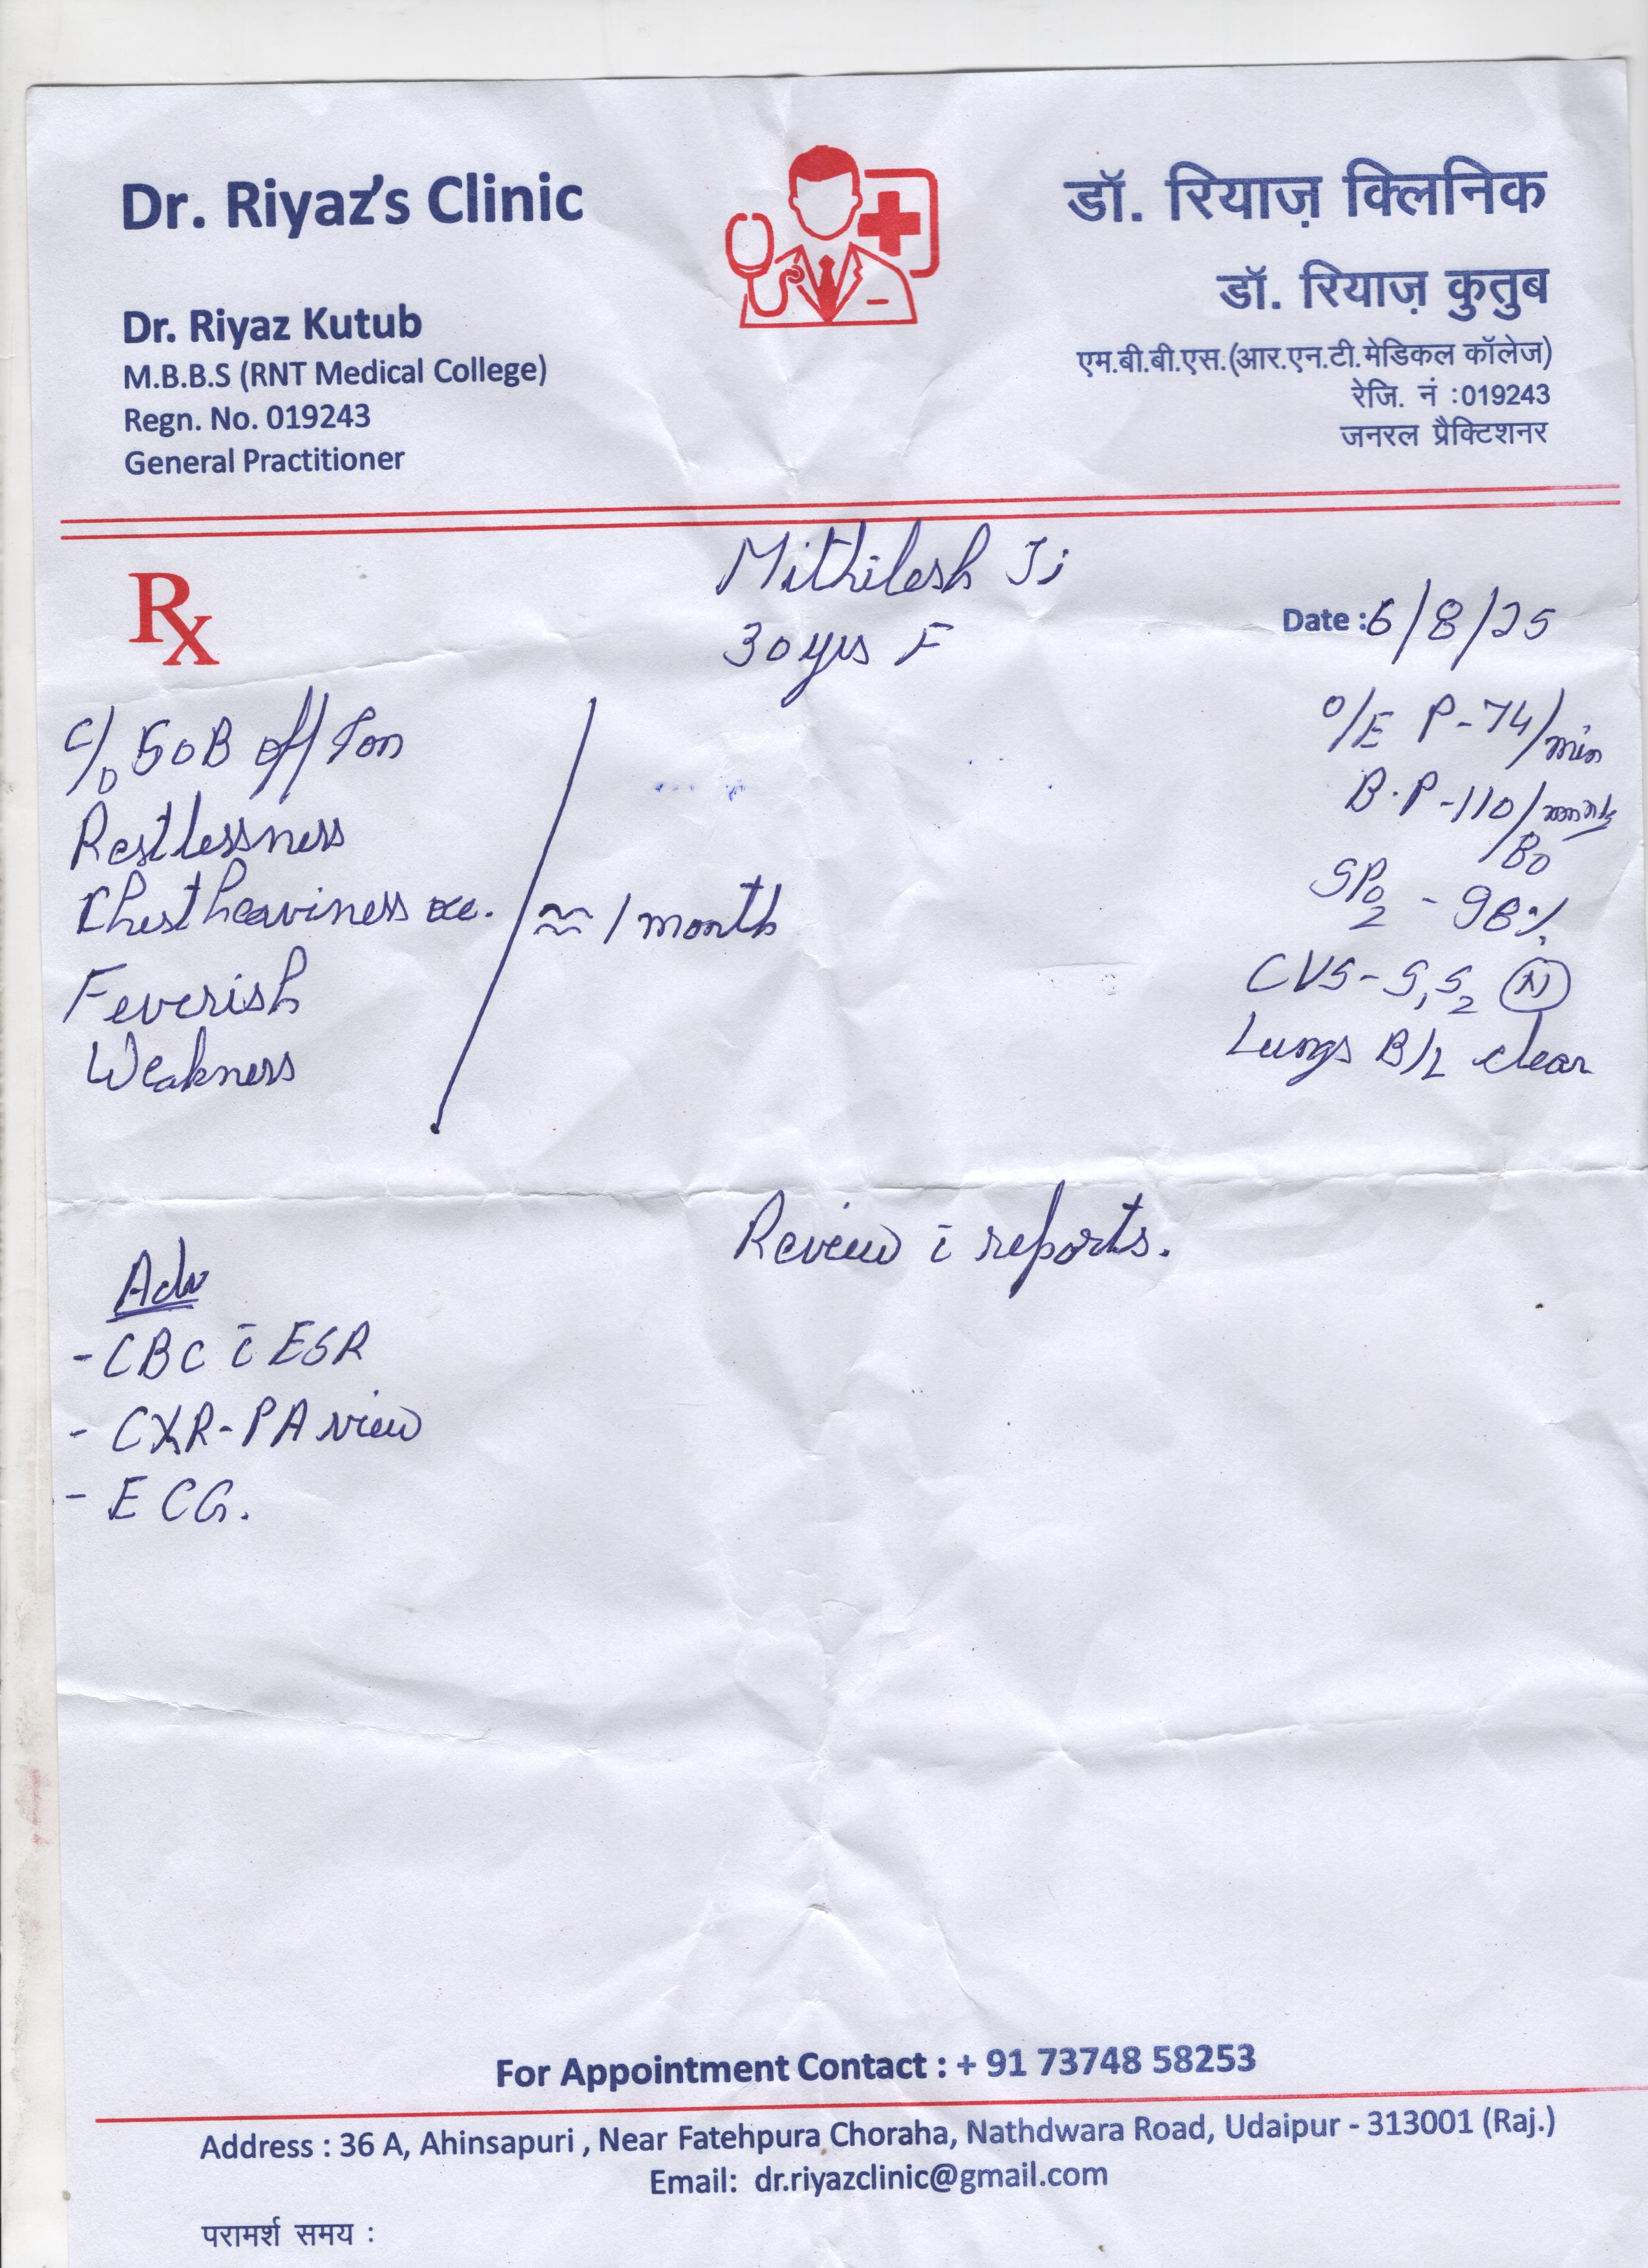 Dr. Riyaz's Clinic
Dr. Riyaz Kutub
M.B.B.S (RNT Medical College)
Regn. No. 019243
General Practitioner
डॉ. रियाज़ क्लिनिक
डॉ. रियाज़ कुतुब
एम.बी.बी.एस.(आर.एन.टी.मेडिकल कॉलेज)
रेजि. नं :019243
जनरल प्रैक्टिशनर
Rx
Mithilesh Ji
30 yrs F
Date : 6/8/25
C/o SOB off/on
Restlessness
Chest heaviness
Feverish
Weakness
≈ 1 month
O/E P-74/min
B.P-110/80 mmHg
SPO2 - 98%
CVS- S1S2 (N)
Lungs B/L clear
Review c̄ reports.
Adv
- CBC c̄ ESR
- CXR-PA view
- ECG.
For Appointment Contact : + 91 73748 58253
Address : 36 A, Ahinsapuri , Near Fatehpura Choraha, Nathdwara Road, Udaipur - 313001 (Raj.)
Email: dr.riyazclinic@gmail.com
परामर्श समय :